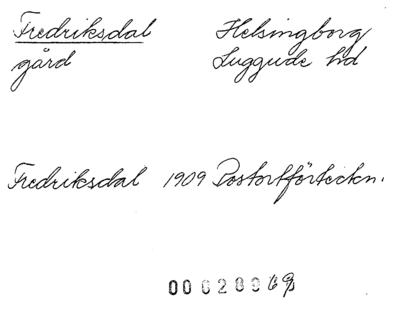 Fredriksdal Helsingborg
gård Luggude hd
Fredriksdal 1909 Postortförteckn.